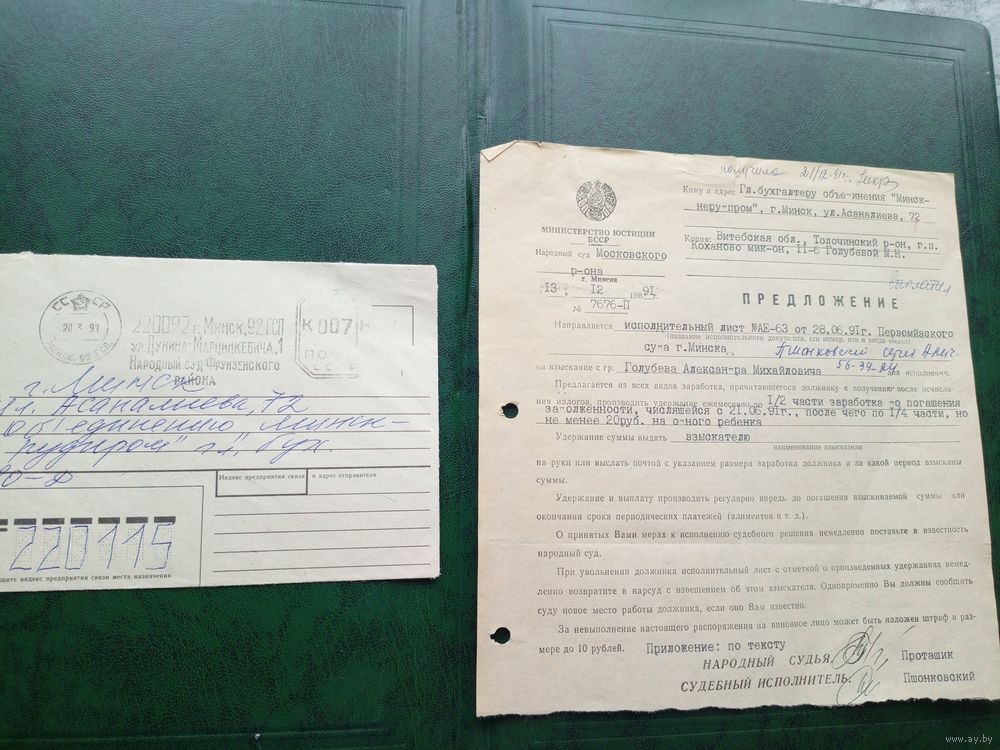 СССР
20 3 91
МИНСК, 92 ГСП
220092 г. Минск, 92 ГСП
ул. Дунина-Марцинкевича, 1
Народный суд Фрунзенского
района
К 007
ПО
г. Минск
Асаналиева, 72
объединению Минск-
Индекс предприятия связи и адрес отправителя
220115
индекс предприятия связи места назначения
получено 21/12-91г.
МИНИСТЕРСТВО ЮСТИЦИИ
БССР
Народный суд Московского
р-она
г. Минска
13 12 1991
№ 7676-П
Кому и адрес Гл.бухгалтеру объе-инения "Минск-
неру-пром", г.Минск, ул.Асаналиева, 72
Копия: Витебская обл., Толочинский р-он, г.п.
Коханово мик-он, 11-6 Голубевой М.Н.
ПРЕДЛОЖЕНИЕ
Направляется исполнительный лист №АЕ-63 от 28.06.91г. Первомйаского
(название исполнительного документа, его номер, кто и когда выдал)
су-а г.Минска Пшонковский Сергей
на взыскание с гр. Голубева Алексан-ра Михайловича 56-39- для исполнения.
Предлагается из всех видов заработка, причитающегося должнику к получению после исчисле-
ния налогов, производить удержание ежемесячно по 1/2 части заработка -о погашения
за-олженности, числяшейся с 21.06.91г., после чего по 1/4 части, но
не менее 20руб. на о-ного ребенка
Удержание суммы выдать взыскателю
наименование взыскателя
на руки или выслать почтой с указанием размера заработка должника и за какой период взысканы
суммы.
Удержание и выплату производить регулярно впредь до погашения взыскиваемой суммы или
окончания срока периодических платежей (алиментов и т. д.).
О принятых Вами мерах к исполнению судебного решения немедленно поставьте в известность
народный суд.
При увольнении должника исполнительный лист с отметкой о произведенных удержаниях немед-
ленно возвратите в нарсуд с извещением об этом взыскателя. Одновременно Вы должны сообщить
суду новое место работы должника, если оно Вам известно.
За невыполнение настоящего распоряжения на виновное лицо может быть наложен штраф в раз-
мере до 10 рублей. Приложение: по тексту
НАРОДНЫЙ СУДЬЯ Проташик
СУДЕБНЫЙ ИСПОЛНИТЕЛЬ. Пшонковский
www.ay.by